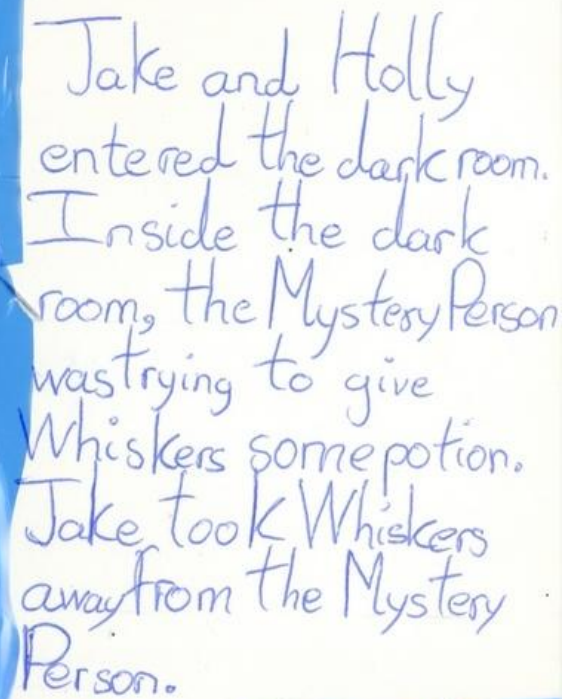 Jake and Holly
entered the dark room.
Inside the dark
room, the Mystery Person
was trying to give
Whiskers some potion.
Jake took Whiskers
away from the Mystery
Person.